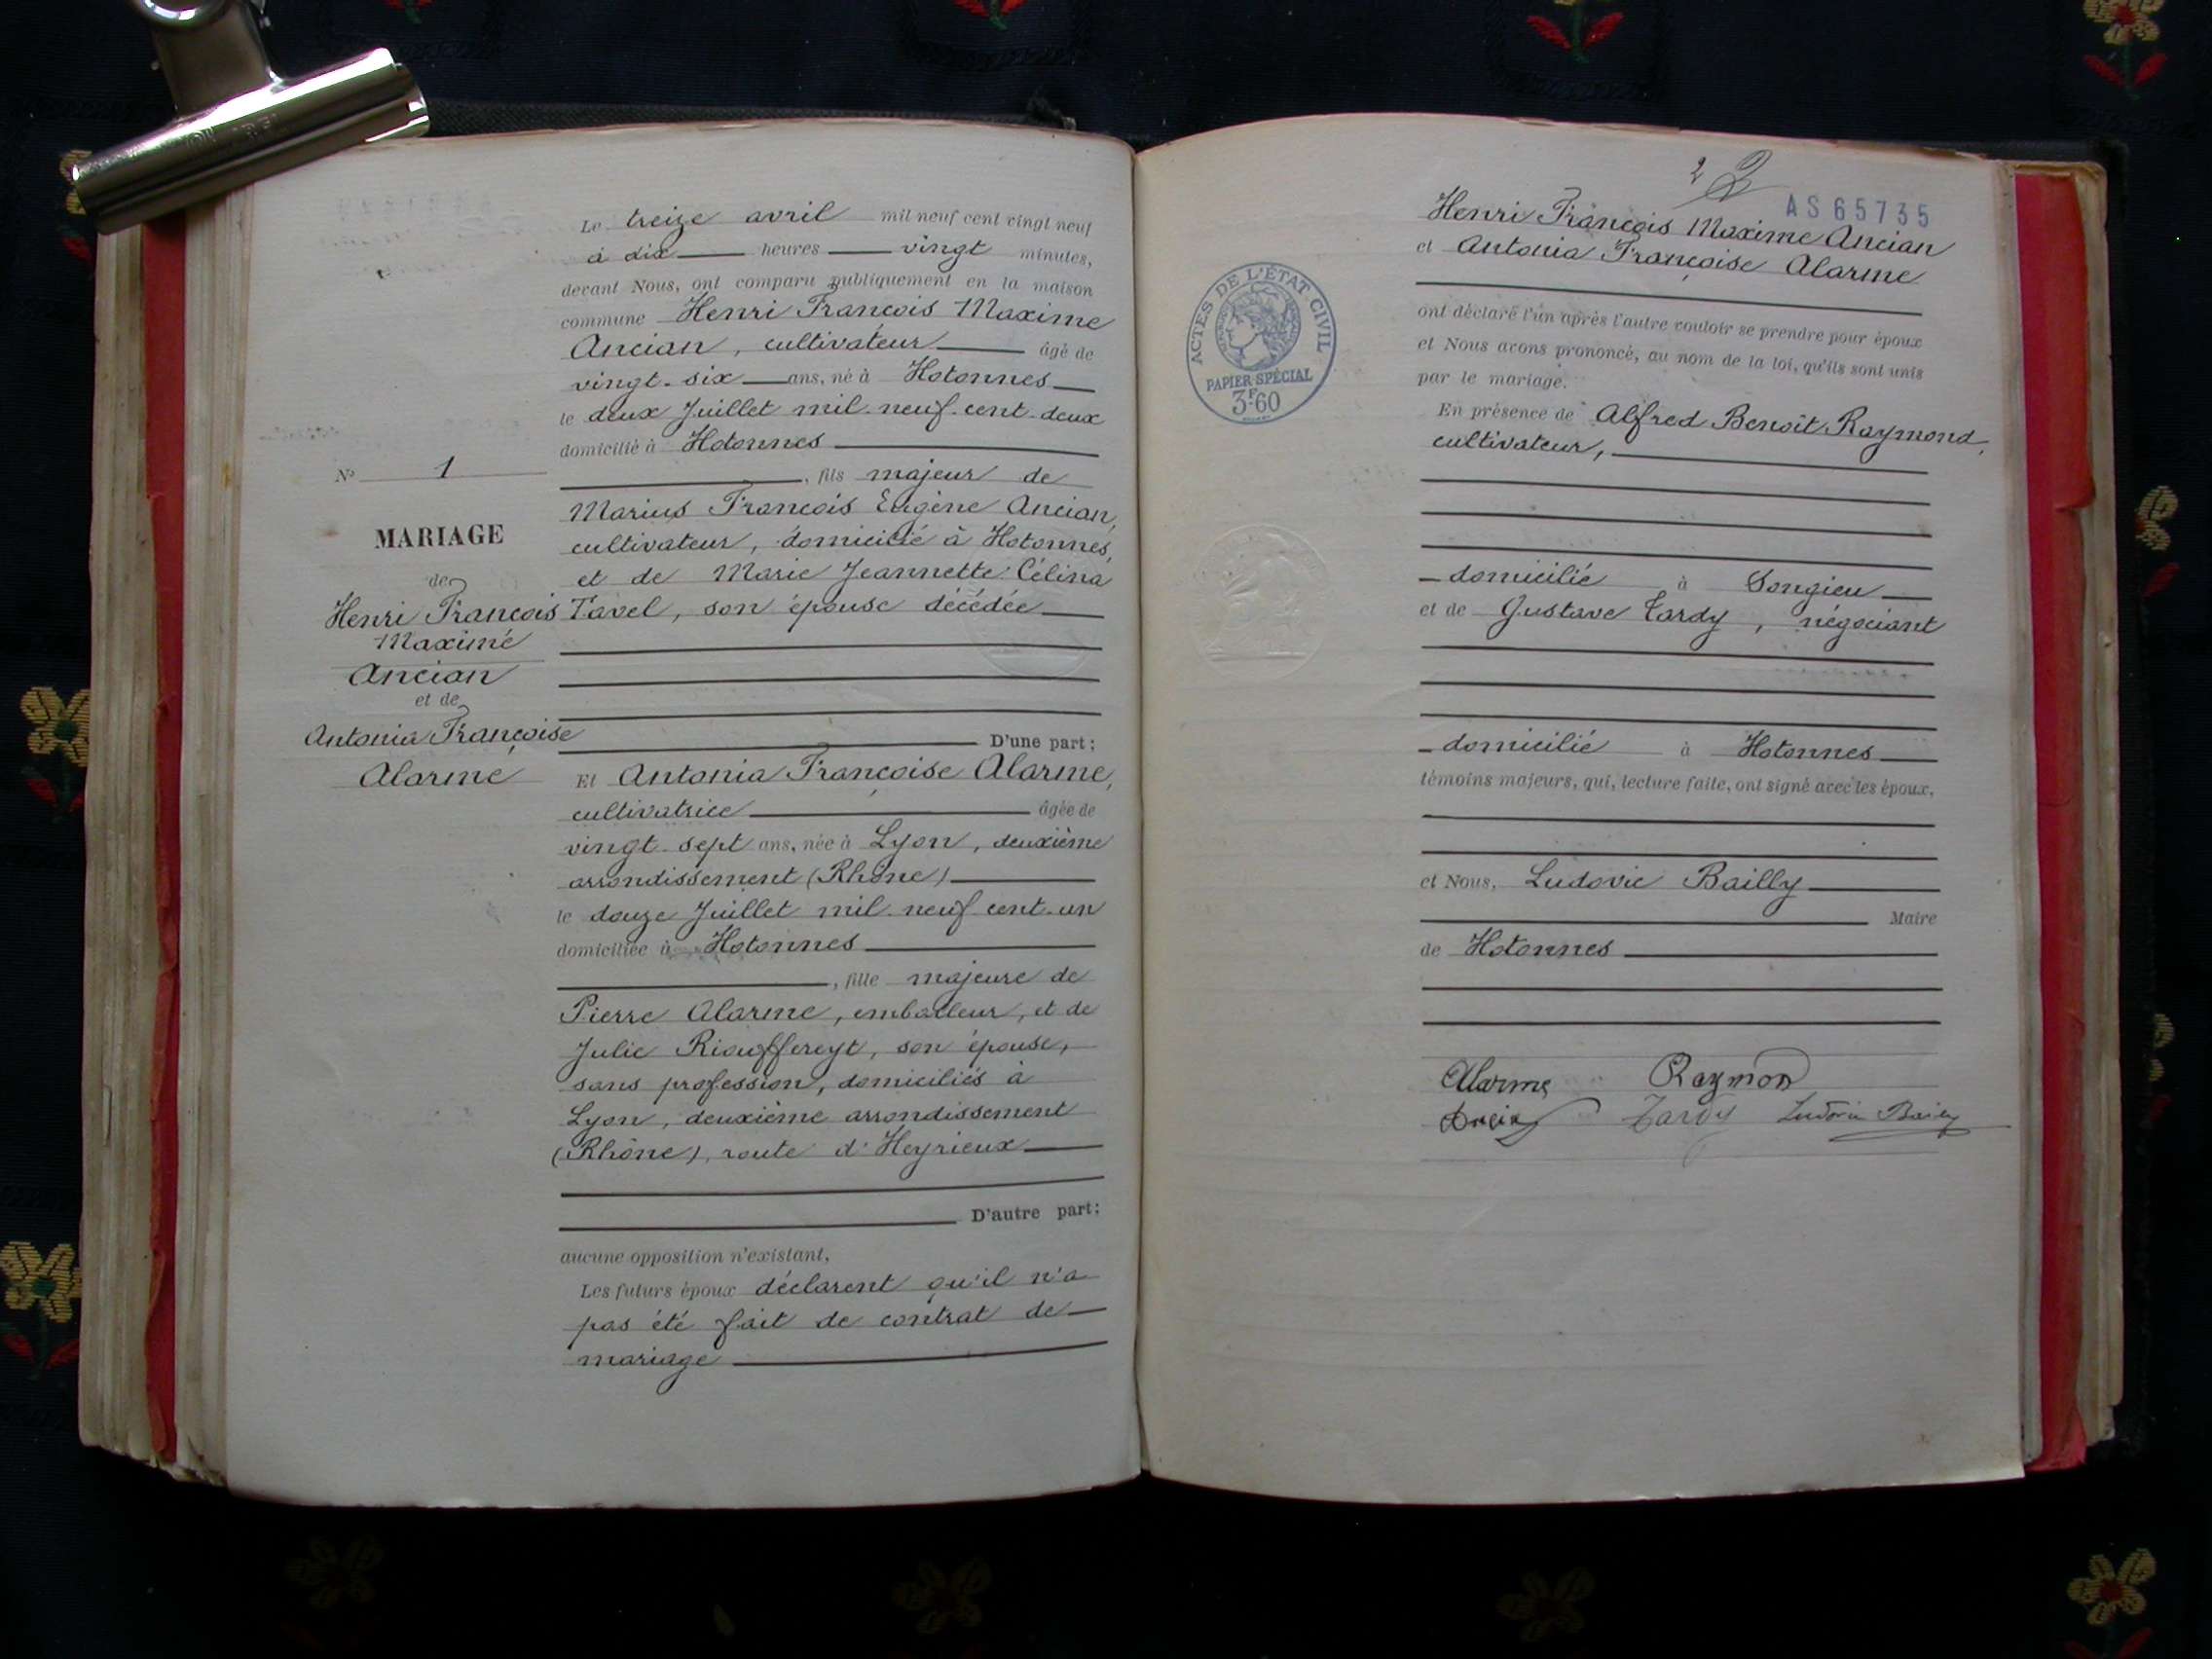 Le treize avril mil neuf cent vingt neuf
à dix heures vingt minutes,
devant Nous, ont comparu publiquement en la maison
commune Henri François Maxime
Ancian, cultivateur âgé de
vingt-six ans, né à Hotonnes
le deux Juillet mil-neuf-cent-deux
domicilié à Hotonnes
, fils majeur de
Marius François Eugène Ancian,
cultivateur, domicilié à Hotonnes,
et de Marie Jeannette Célina
Tavel, son épouse décédée
D'une part;
Et Antonia Françoise Alarme,
cultivatrice âgée de
vingt-sept ans, née à Lyon, deuxième
arrondissement (Rhône)
le douze Juillet mil-neuf-cent-un
domiciliée à Hotonnes
, fille majeure de
Pierre Alarme, emballeur, et de
Julie Riouffereyt, son épouse,
sans profession, domiciliés à
Lyon, deuxième arrondissement
(Rhône), route d'Heyrieux
D'autre part;
aucune opposition n'existant,
Les futurs époux déclarent qu'il n'a
pas été fait de contrat de
mariage
N° 1
MARIAGE
de
Henri François
Maxime
Ancian
et de
Antonia Françoise
Alarme
2 2
AS65735
Henri François Maxime Ancian
et Antonia Françoise Alarme
ont déclaré l'un après l'autre vouloir se prendre pour époux
et Nous avons prononcé, au nom de la loi, qu'ils sont unis
par le mariage.
En présence de Alfred Benoît Raymond,
cultivateur,
domicilié à Songieu
et de Gustave Tardy, négociant
domicilié à Hotonnes
témoins majeurs, qui, lecture faite, ont signé avec les époux,
et Nous, Ludovic Bailly
Maire
de Hotonnes
Alarme Raymon
Tardy Ludovic Bailly
ACTES DE L'ÉTAT CIVIL
PAPIER SPÉCIAL
3F.60